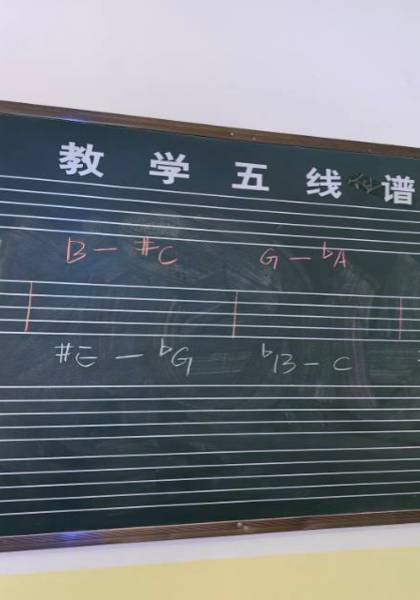 教学五线谱
B — #C G — bA
#E — bG bB — C